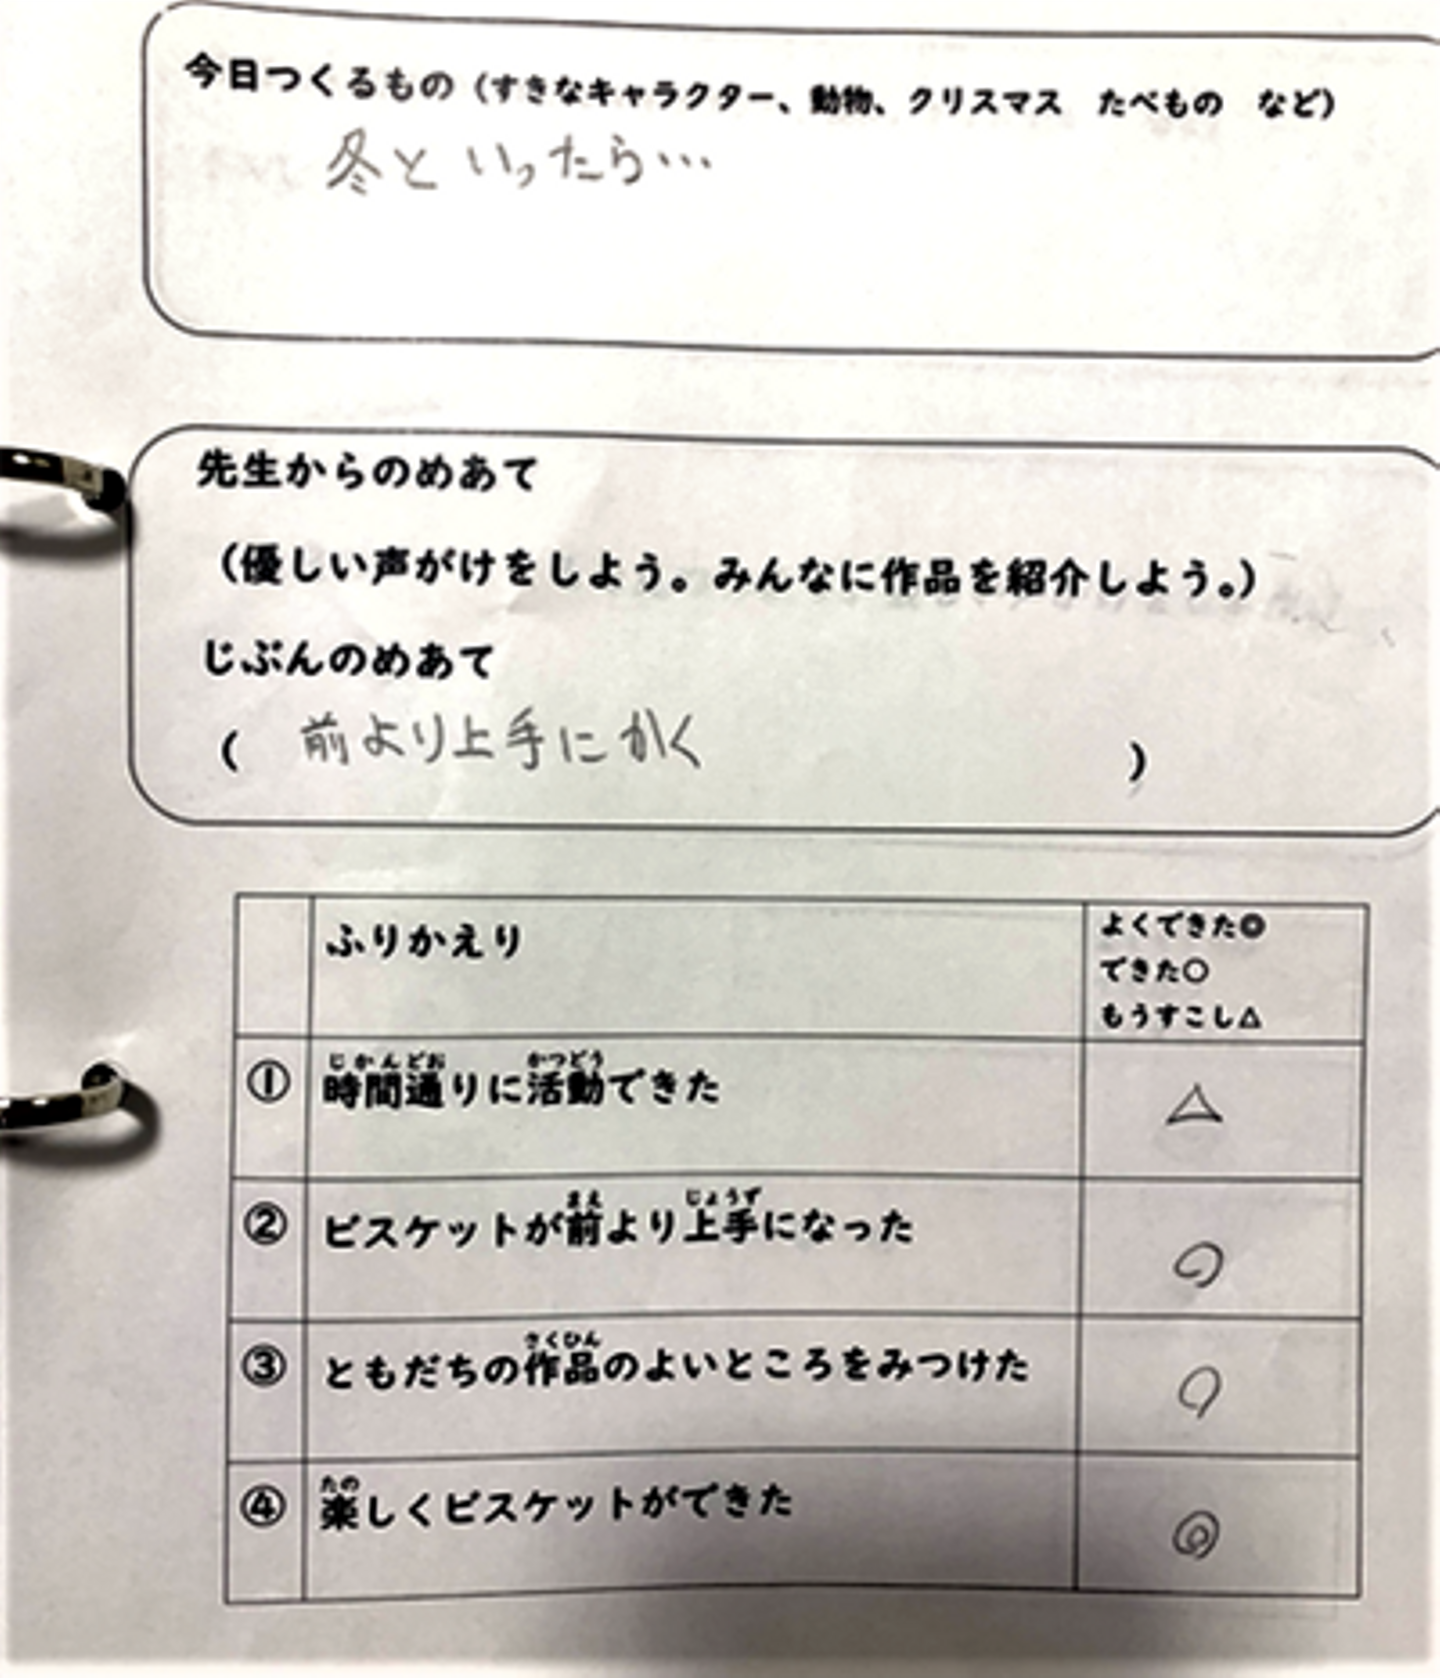 今日つくるもの（すきなキャラクター、動物、クリスマス　たべもの　など）
冬といったら…
先生からのめあて
（優しい声がけをしよう。みんなに作品を紹介しよう。）
じぶんのめあて
（　前より上手にかく　）
ふりかえり
よくできた◎
できた〇
もうすこし△
じかんどお　かつどう
① 時間通りに活動できた △
まえ　じょうず
② ビスケットが前より上手になった 〇
さくひん
③ ともだちの作品のよいところをみつけた 〇
たの
④ 楽しくビスケットができた ◎